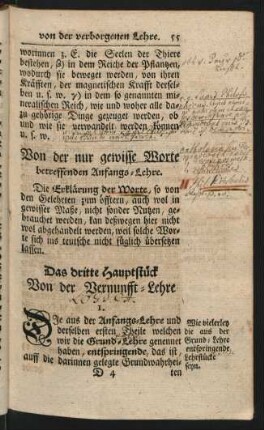 von der verborgenen Lehre. 55
worinnen z. E. die Seelen der Thiere
bestehen, β) in dem Reiche der Pflantzen,
wodurch sie beweget werden, von ihren
Kräfften, der magnetischen Krafft dersel-
ben u. s. w. γ) in dem so genannten mi-
neralischen Reich, wie und woher alle da-
zu gehörige Dinge gezeuget werden, ob
und wie sie verwandelt werden können
u. s. w.
Von der nur gewisse Worte
betreffenden Anfangs-Lehre.
Die Erklärung der Worte, so von
den Gelehrten zum öfftern, auch wol in
gewisser Maße, nicht sonder Nutzen, ge-
brauchet werden, kan deßwegen hier nicht
wol abgehandelt werden, weil solche Wor-
te sich ins teutsche nicht füglich übersetzen
lassen.
Das dritte Hauptstück
Von der Vernunfft-Lehre
1.
Die aus der Anfangs-Lehre und
derselben ersten Theile welchen
wir die Grund-Lehre genennet
haben, entspringende, das ist,
auff die darinnen gelegte Grundwahrhei-
Wie vielerley
die aus der
Grund-Lehre
entspringende
Lehrstücke
seyn.
D 4 ten